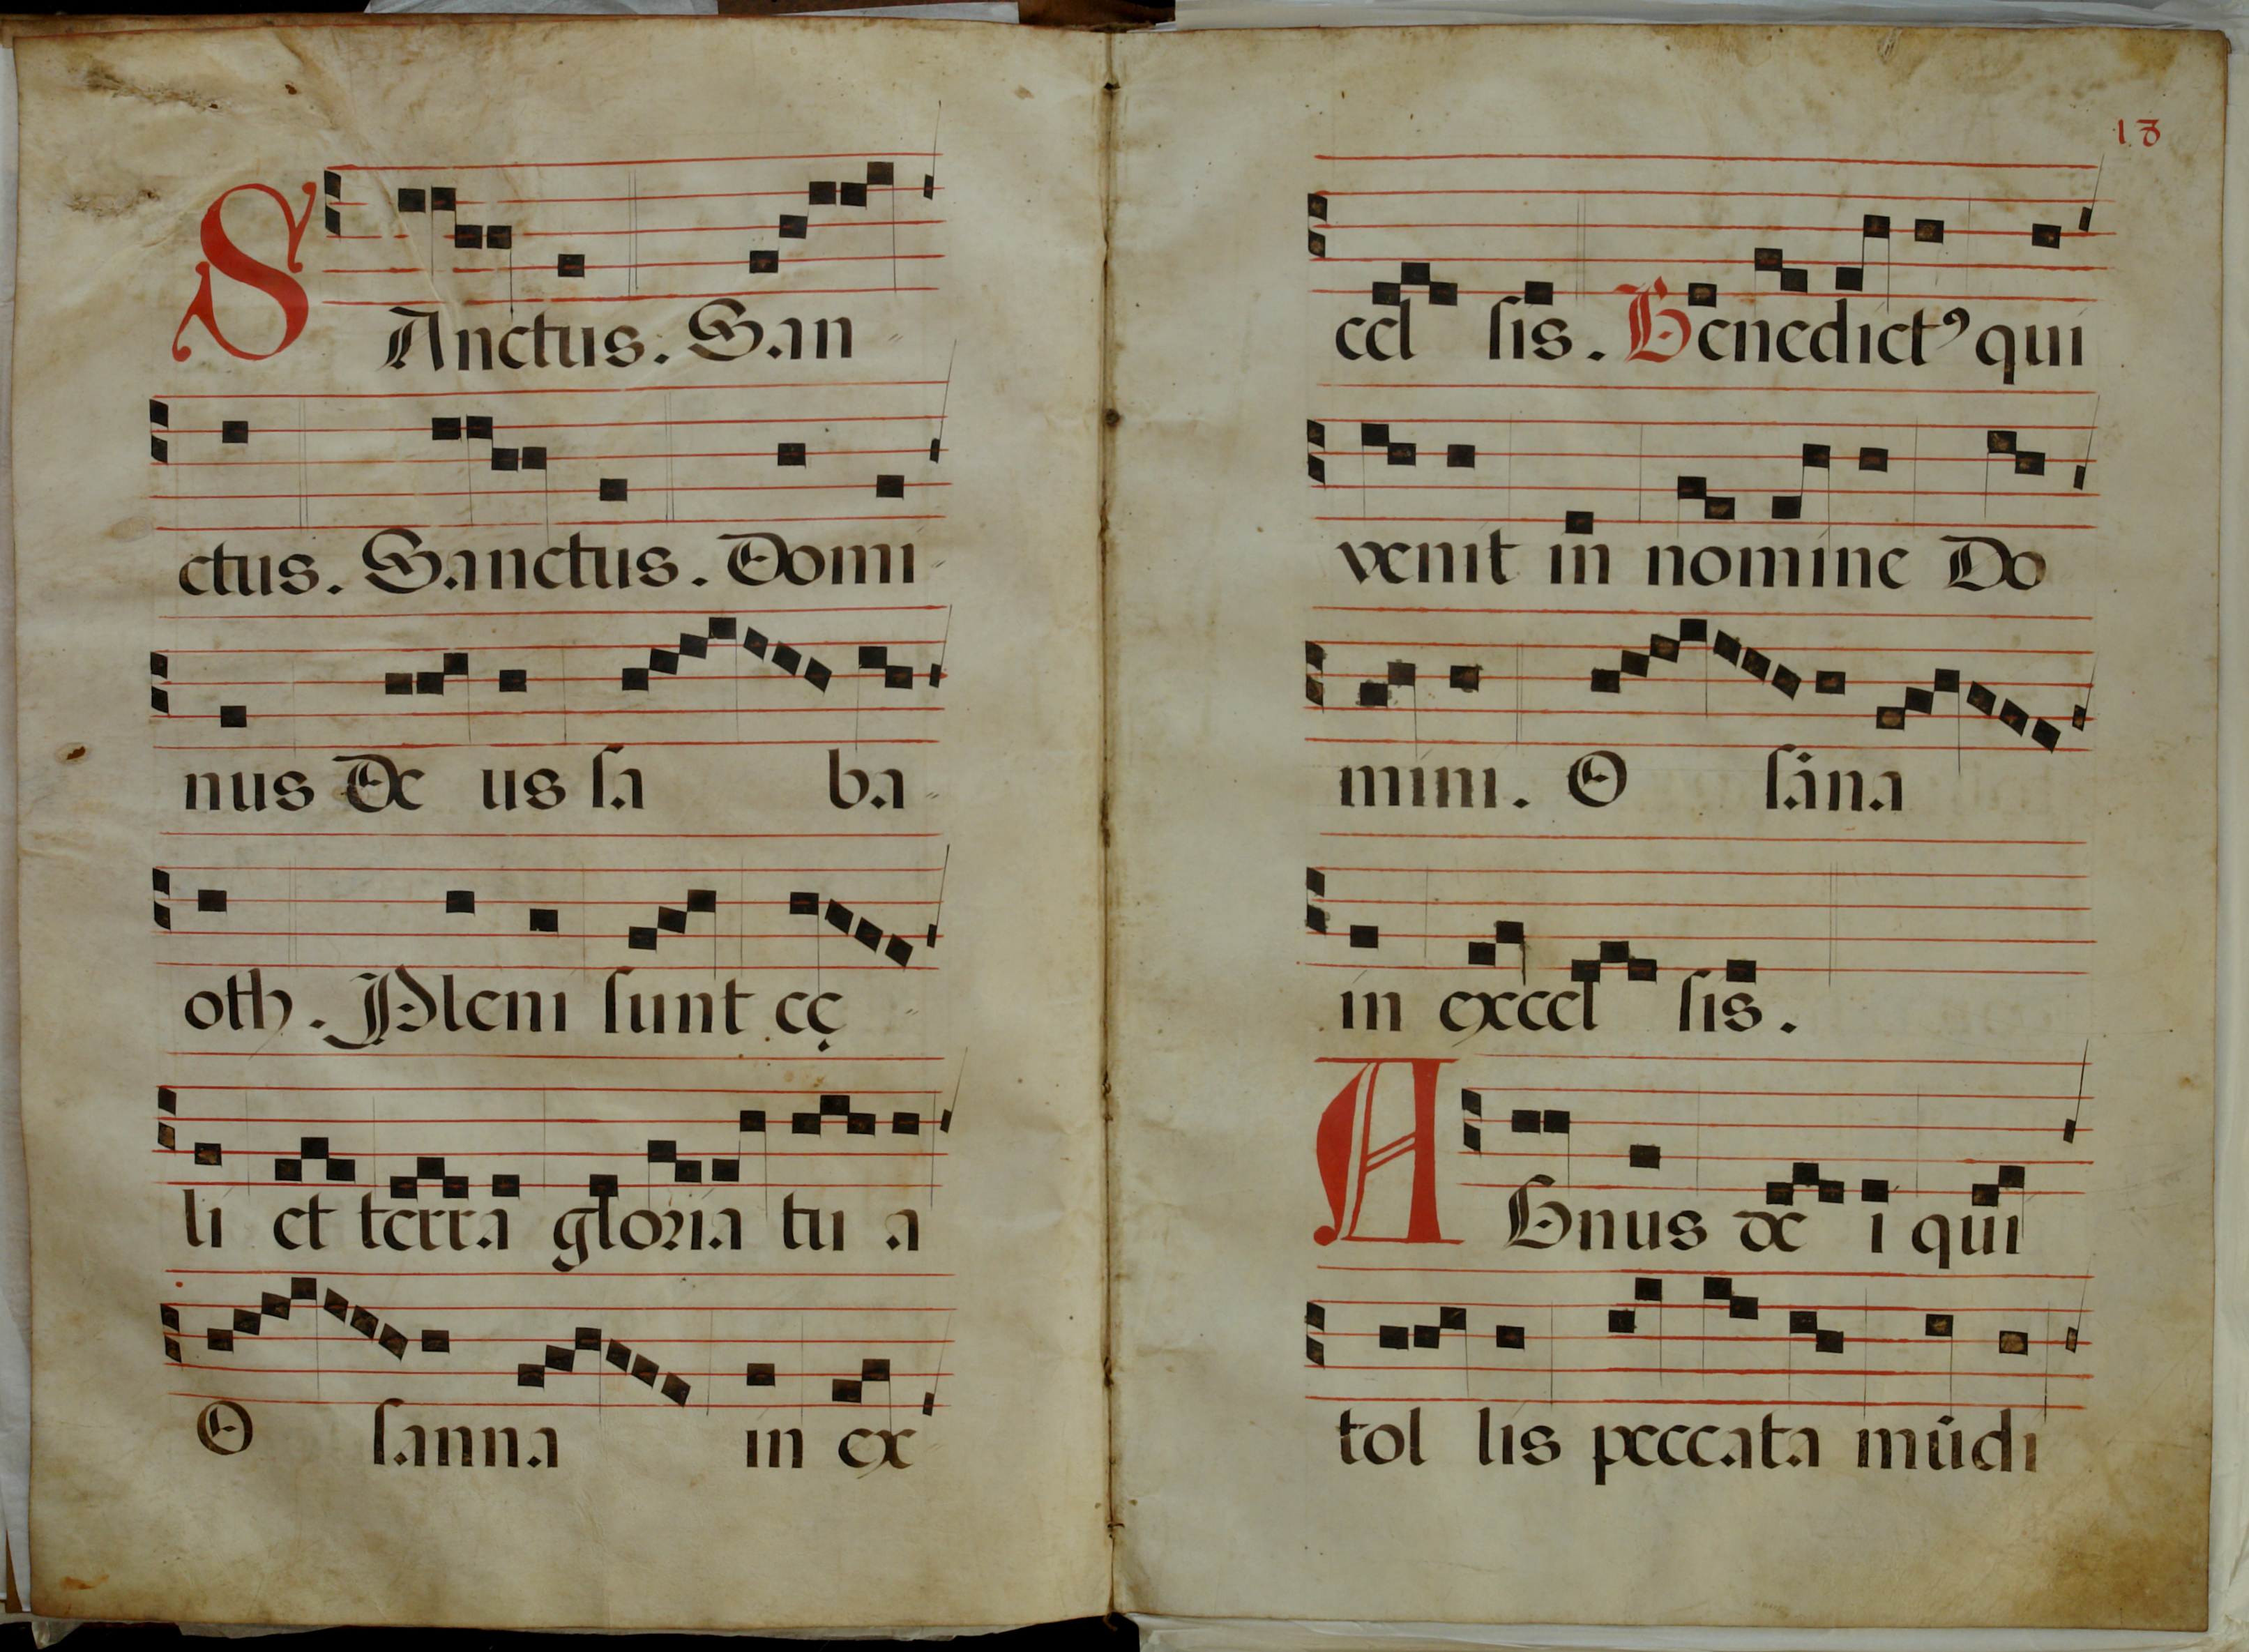 SAnctus. San
ctus. Sanctus. Domi
nus De us ſa ba
oth. Pleni ſunt cę
li et terra gloꝛia tu a
O ſanna in ex
18
cel ſis. Benedictꝰ qui
venit in nomine Do
mini. O ſāna
in excel ſis.
AGnus de i qui
tol lis peccata mūdi